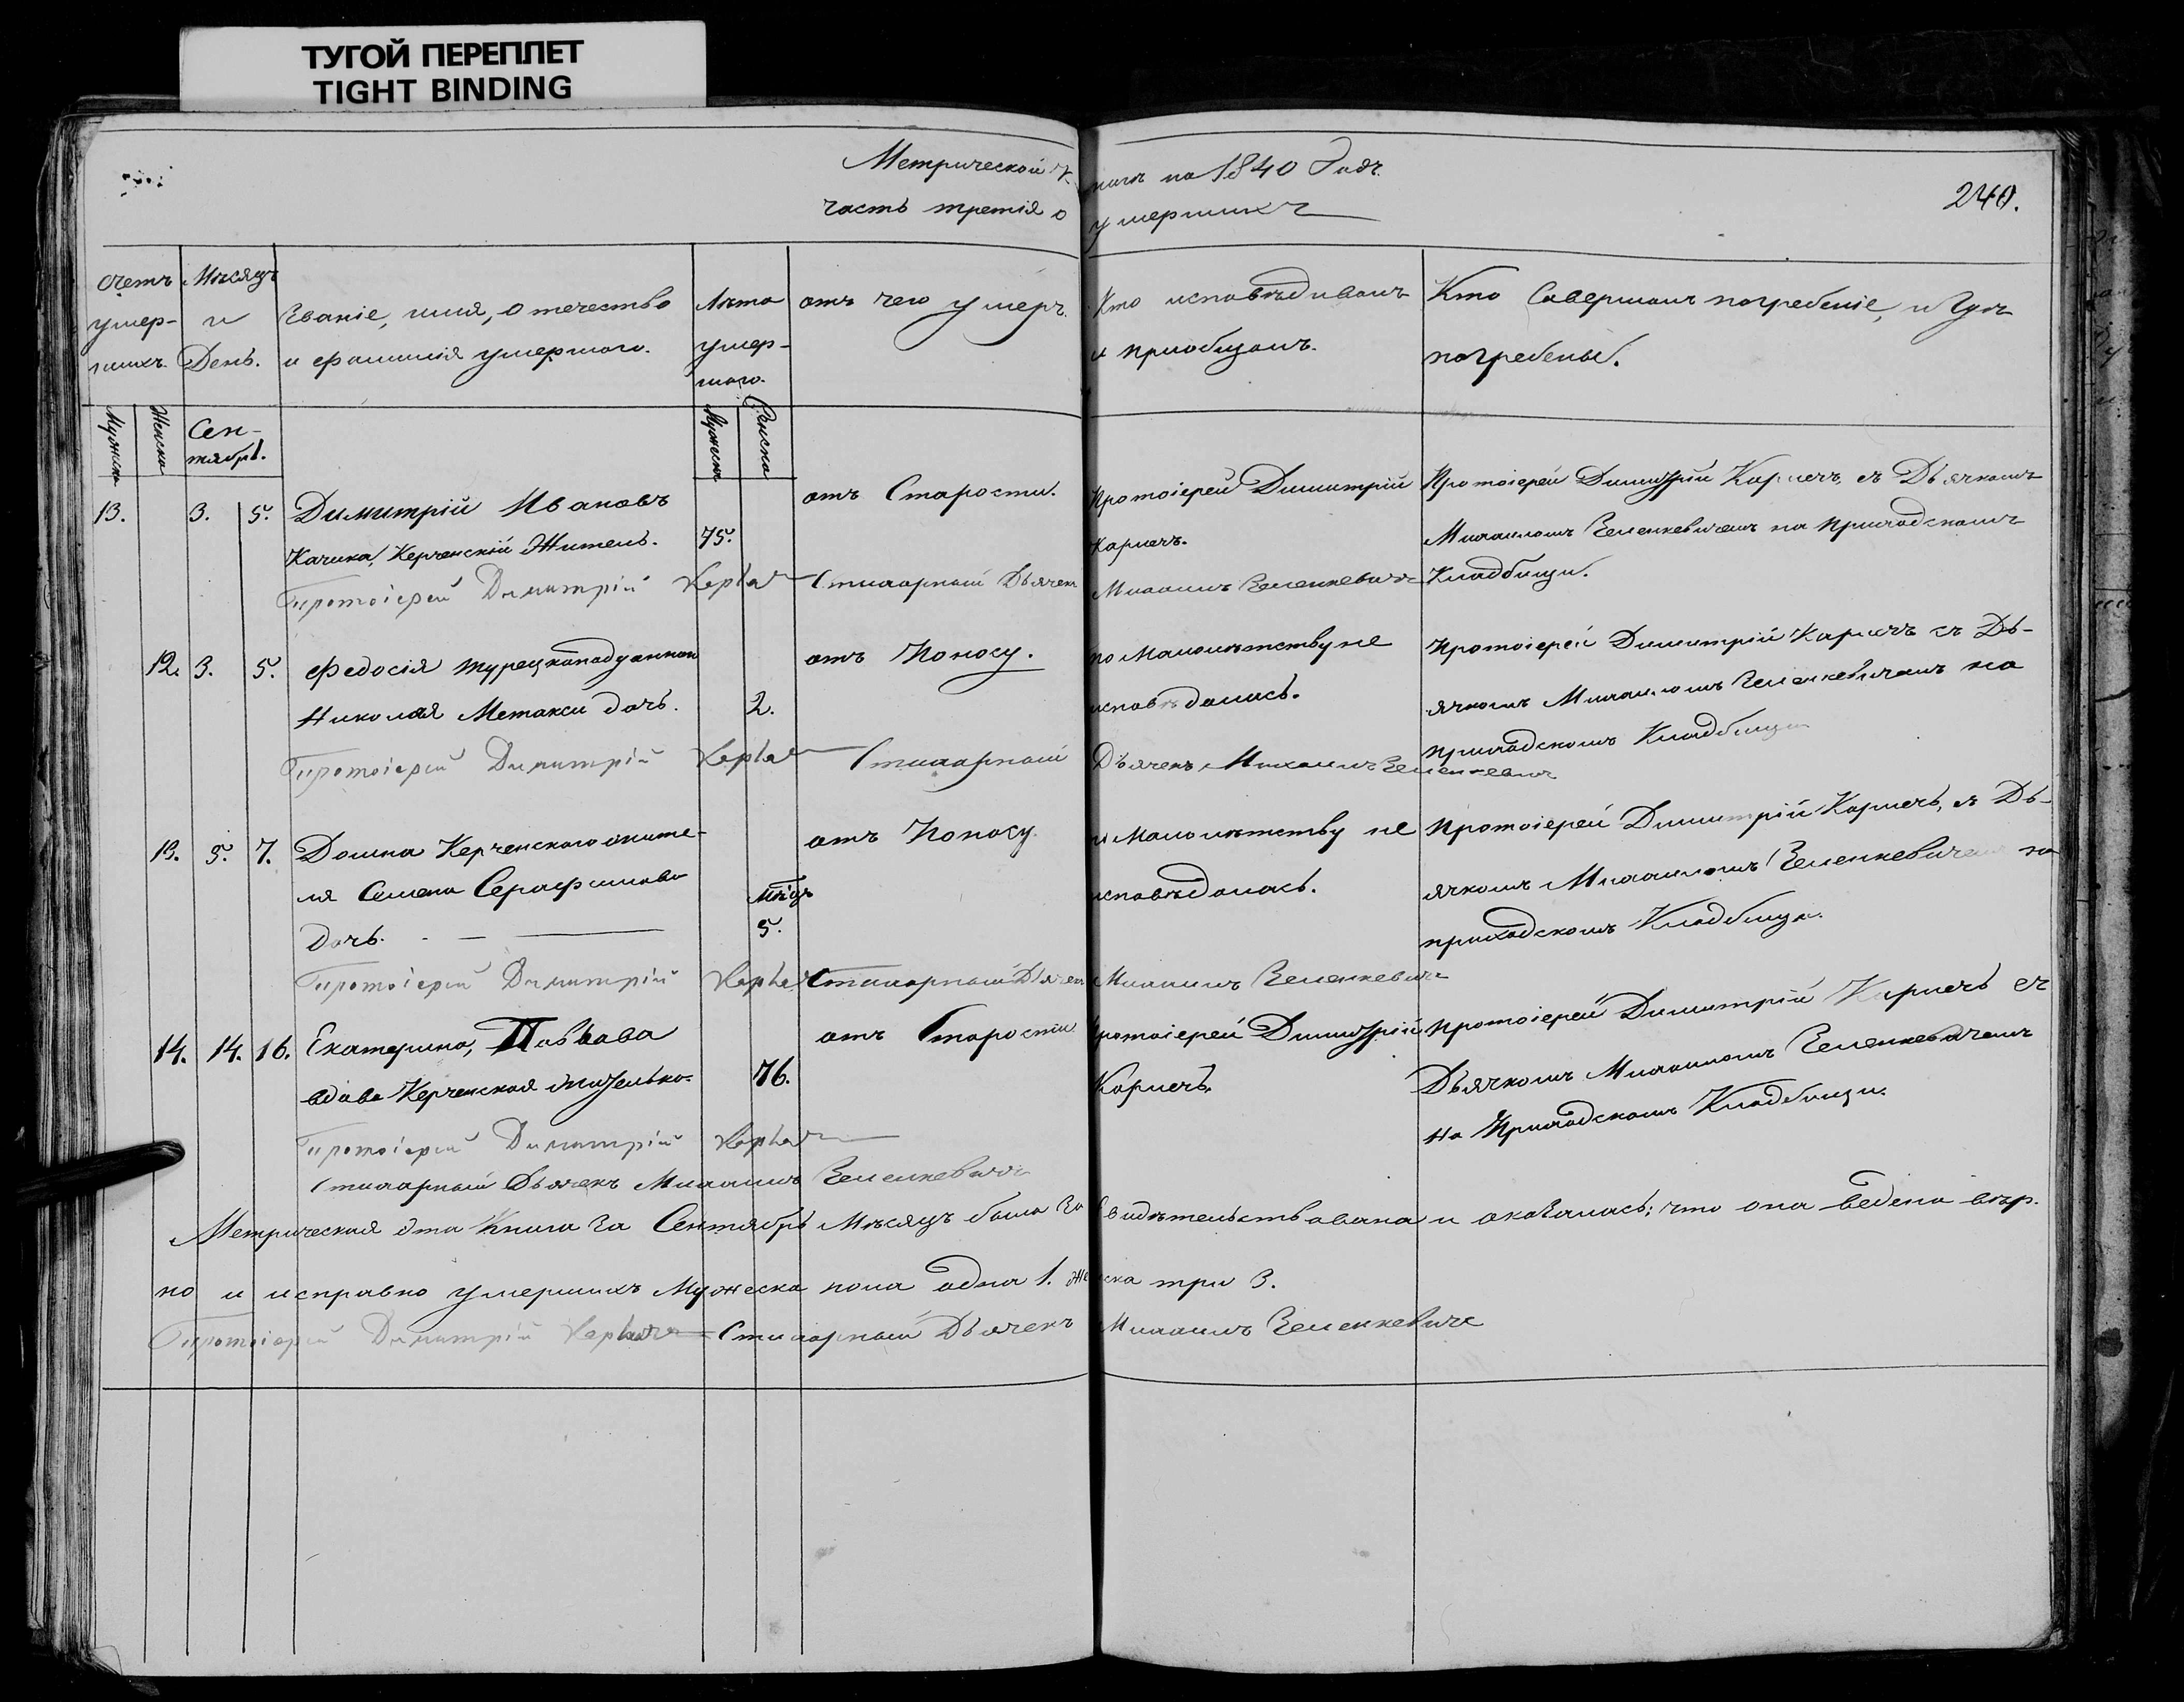 ТУГОЙ ПЕРЕПЛЕТ
TIGHT BINDING
Метрической книги на 1840 Годъ.
часть третія о умершихъ
240.
счетъ умер-шихъ.
Мѣсяцъ и День.
Званіе, имя, отечество и фамилія умершаго.
Лѣта умер-шаго.
отъ чего умеръ.
Кто исповѣдивалъ и приобщалъ.
Кто Совершалъ погребеніе, и Гдѣ погребены.
Мужска Женска Сен-тябрь. Мужска Женска
13. 3. 5. Димитрій Ивановъ отъ Старости. Протоіерей Димитрій Протоіерей Димитрій Карпечъ, съ Дьячкомъ
Качика, Керченскій Житель. 75. Карпечъ. Михаиломъ Зеленкевичемъ на Приходскомъ
Протоіерей Димитрій Стихарный Дьячекъ Михаилъ Зеленкевичъ Кладбищи.
12. 3. 5. Федосія турецкоподданнаго отъ Поносу. по Малолѣтству не Протоіерей Димитрій Карпечъ съ Дь-
Николая Метакси дочь. 2. исповѣдалась. ячкомъ Михаиломъ Зеленкевичемъ на
приходскомъ Кладбищи
Протоіерей Димитрій Стихарный Дьячекъ Михаилъ Зеленкевичъ
13. 5. 7. Домна Керченскаго жите- отъ Поносу. по Малолѣтству не Протоіерей Димитрій Карпечъ, съ Дь-
ля Семена Серафимова мѣсц. исповѣдалась. ячкомъ Михаиломъ Зеленкевичемъ на
Дочь. 5. приходскомъ Кладбищи.
Протоіерей Димитрій Стихарный Дьячекъ Михаилъ Зеленкевичъ
14. 14. 16. Екатерина, отъ Старости Протоіерей Димитрій Протоіерей Димитрій Карпечъ съ
вдова Керченская жителька. 76. Карпечъ. Дьячкомъ Михаиломъ Зеленкевичемъ
На Приходскомъ Кладбищи.
Протоіерей Димитрій
Стихарный Дьячекъ Михаилъ Зеленкевичъ
Метрическая эта Книга За Сентябрь Мѣсяцъ была Засвидѣтельствована и оказалась; что она ведена вѣр-
но и исправно умершихъ Мужеска пола одна 1. Женска три 3.
Протоіерей Димитрій Стихарный Дьячекъ Михаилъ Зеленкевичъ